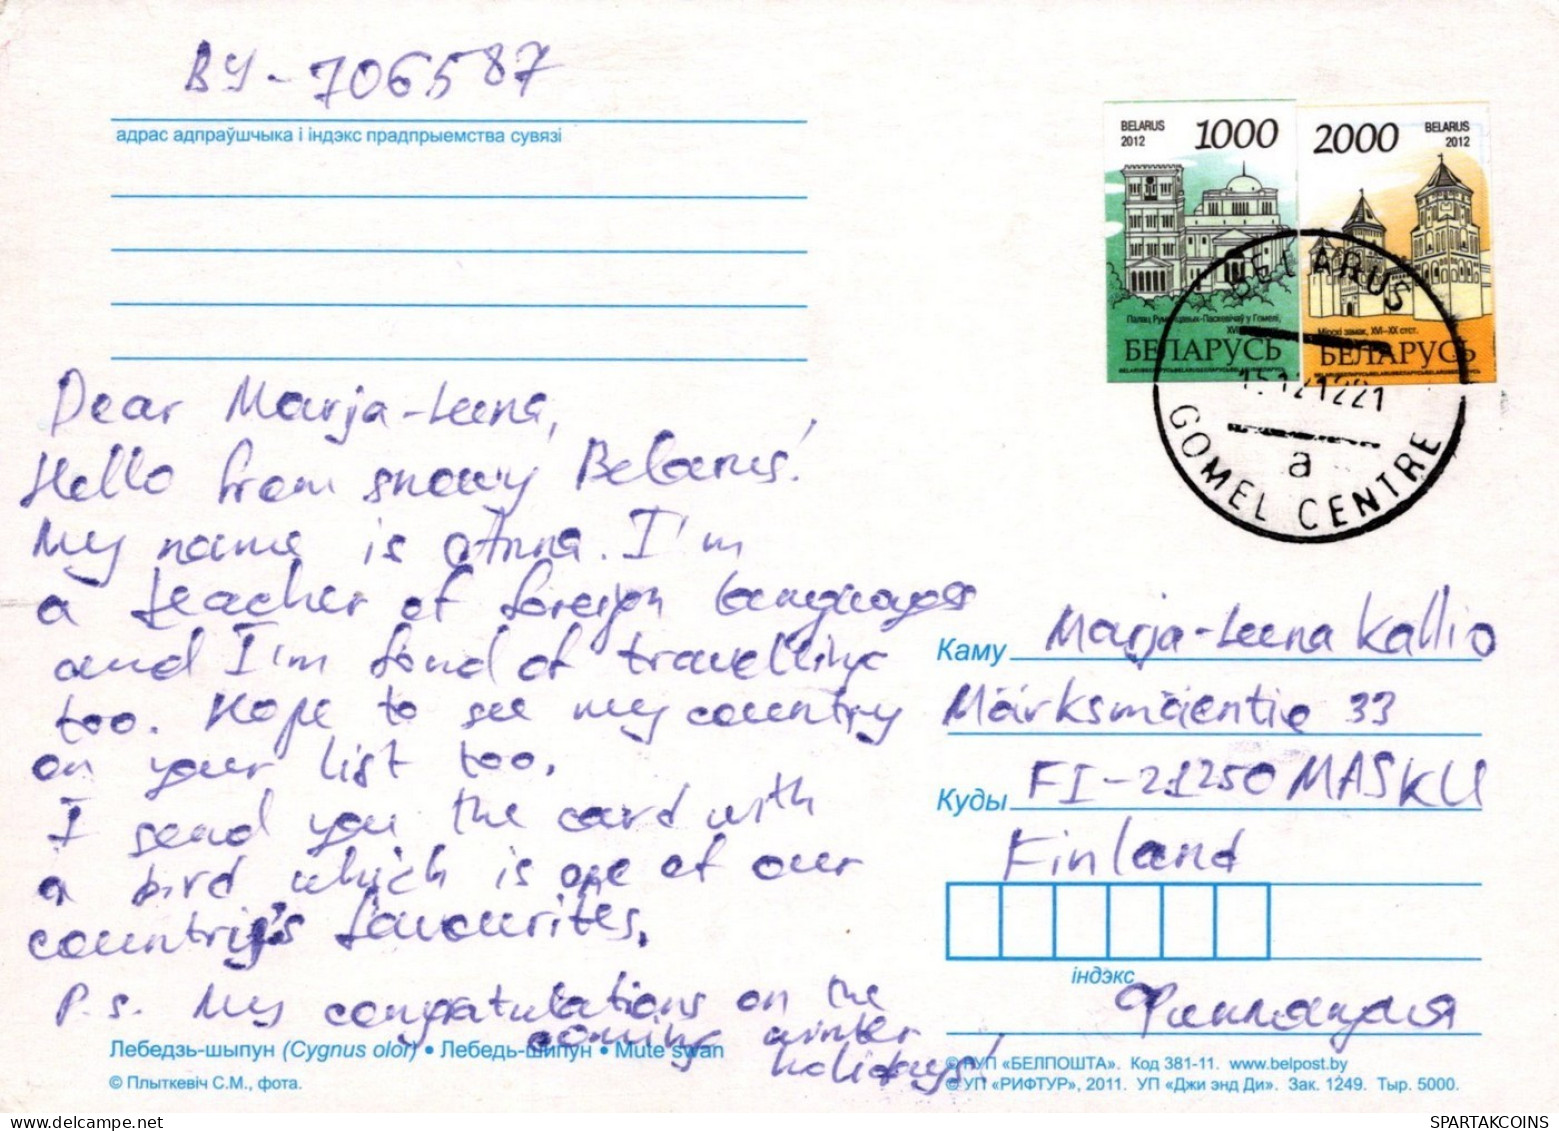 BY-706587
адрас адпраўшчыка і індэкс прадпрыемства сувязі
BELARUS
2012
1000
Палац Румянцавых-Паскевічаў у Гомелі,
БЕЛАРУСЬ
2000
BELARUS
2012
Мірскі замак, XVI–XX стст.
БЕЛАРУСЬ
BELARUS
a
GOMEL CENTRE
Dear Marja-Leena,
Hello from snowy Belarus!
My name is Anna. I'm
a teacher of foreign languages
and I'm fond of travelling
too. Hope to see my country
on your list too.
I send you the card with
a bird which is one of our
country's favourites.
P.S. My congratulations on the
coming winter
holidays!
Каму Marja-Leena Kallio
Märksmäentie 33
Куды FI-21250 MASKU
Finland
індэкс
Финляндия
Лебедзь-шыпун (Cygnus olor) • Лебедь-шипун • Mute swan
© Плыткевіч С.М., фота.
© РУП «БЕЛПОШТА». Код 381-11. www.belpost.by
© УП «РИФТУР», 2011. УП «Джи энд Ди». Зак. 1249. Тыр. 5000.
SPARTAKCOINS